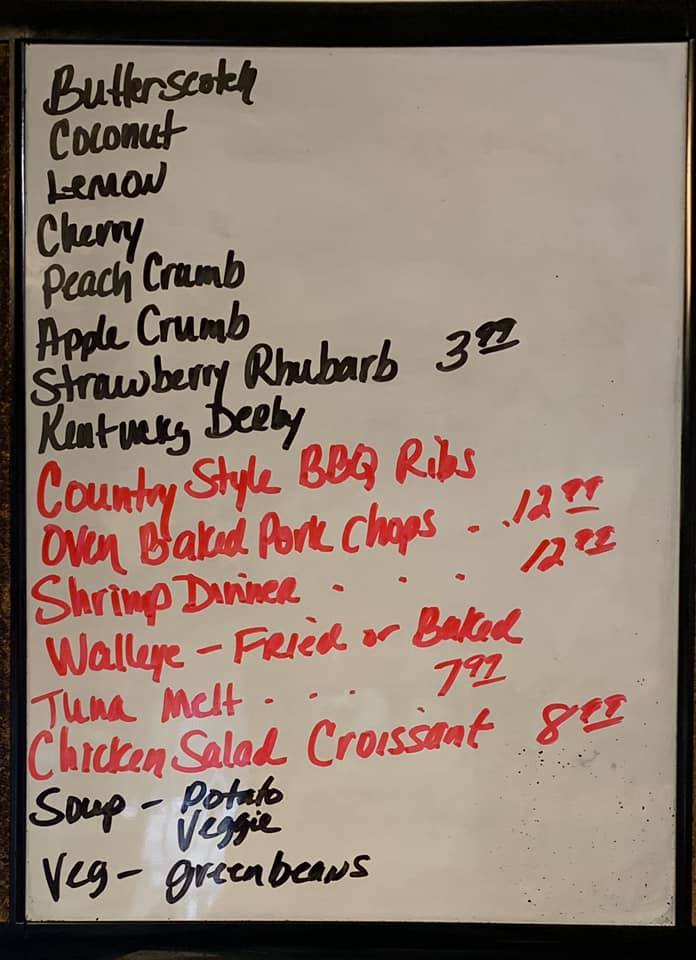 Butterscotch
Coconut
Lemon
Cherry
Peach Crumb
Apple Crumb
Strawberry Rhubarb 3.99
Kentucky Derby
Country Style BBQ Ribs
Oven Baked Pork Chops . . 12.99
Shrimp Dinner . . . 12.99
Walleye - Fried or Baked
Tuna Melt . . . 7.99
Chicken Salad Croissant 8.99
Soup - Potato
Veggie
Veg - greenbeans